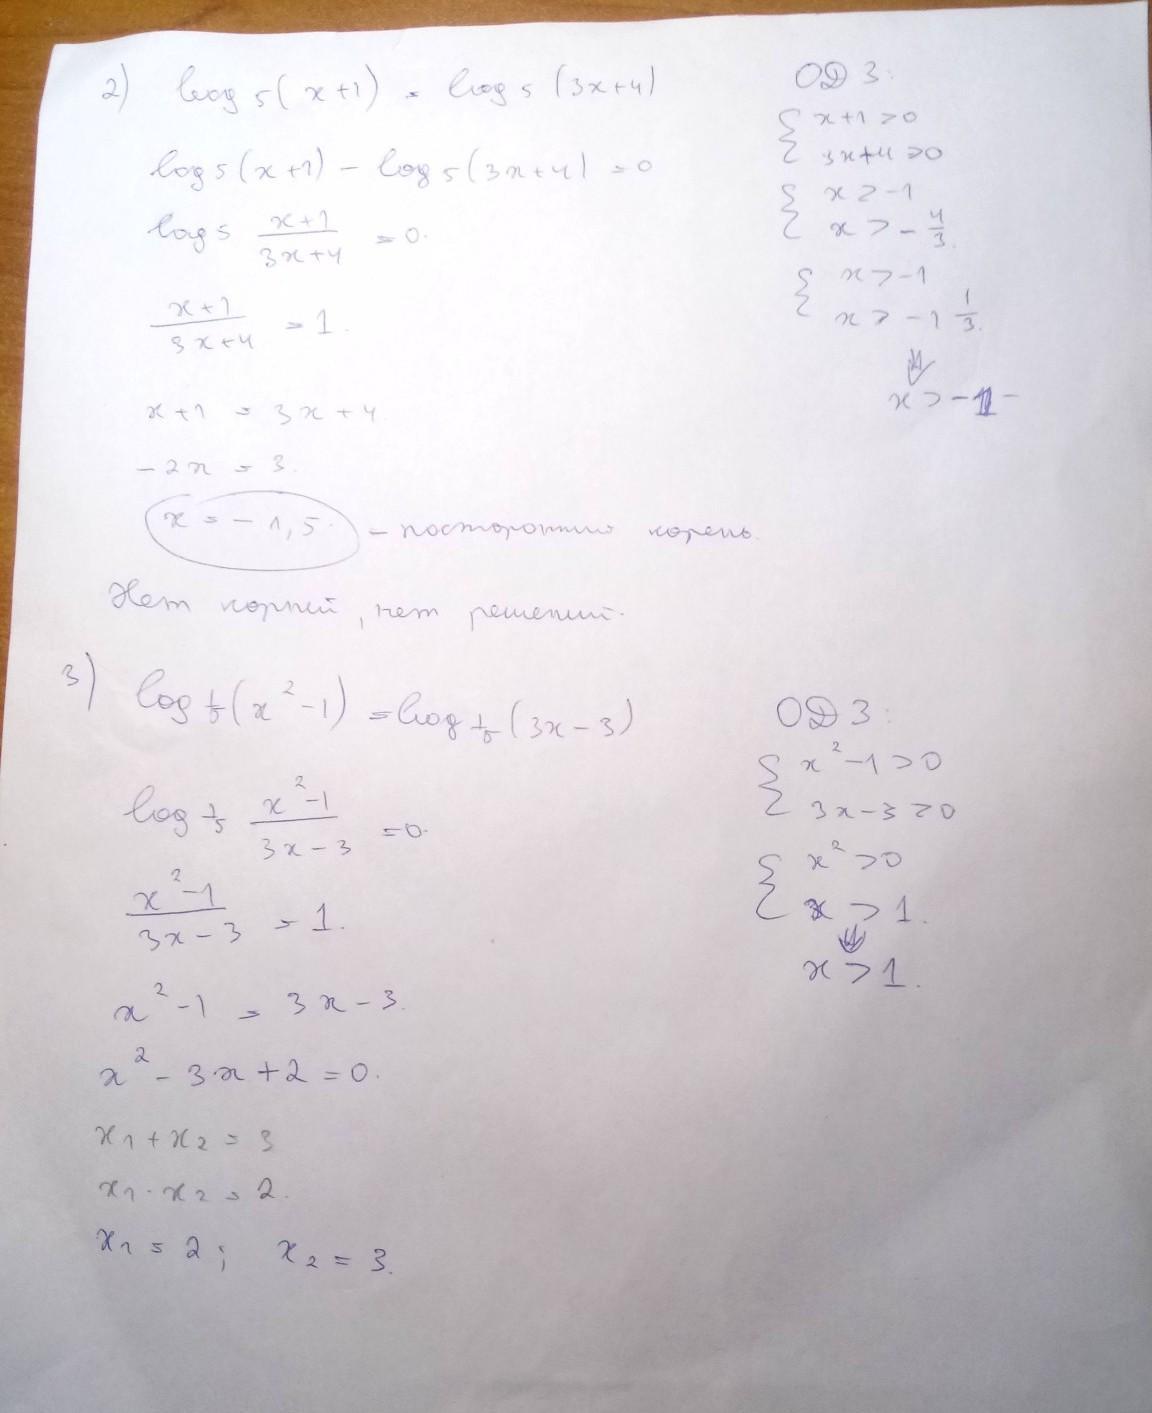 2) log₅(x+1) = log₅(3x+4)
log₅(x+1) − log₅(3x+4) = 0
log₅ (x+1)/(3x+4) = 0.
(x+1)/(3x+4) = 1.
x+1 = 3x+4.
−2x = 3.
x = −1,5. – посторонний корень.
Нет корней, нет решений.
ОДЗ:
{ x+1>0
3x+4>0
{ x>−1
x>−4/3.
{ x>−1
x>−1 1/3.
⇓
x>−1
3) log 1/5 (x²−1) = log 1/5 (3x−3)
log 1/5 (x²−1)/(3x−3) = 0.
(x²−1)/(3x−3) = 1.
x²−1 = 3x−3.
x²−3x+2=0.
x₁+x₂=3
x₁·x₂=2.
x₁=2; x₂=3.
ОДЗ:
{ x²−1>0
3x−3>0
{ x²>0
x>1.
⇓
x>1.